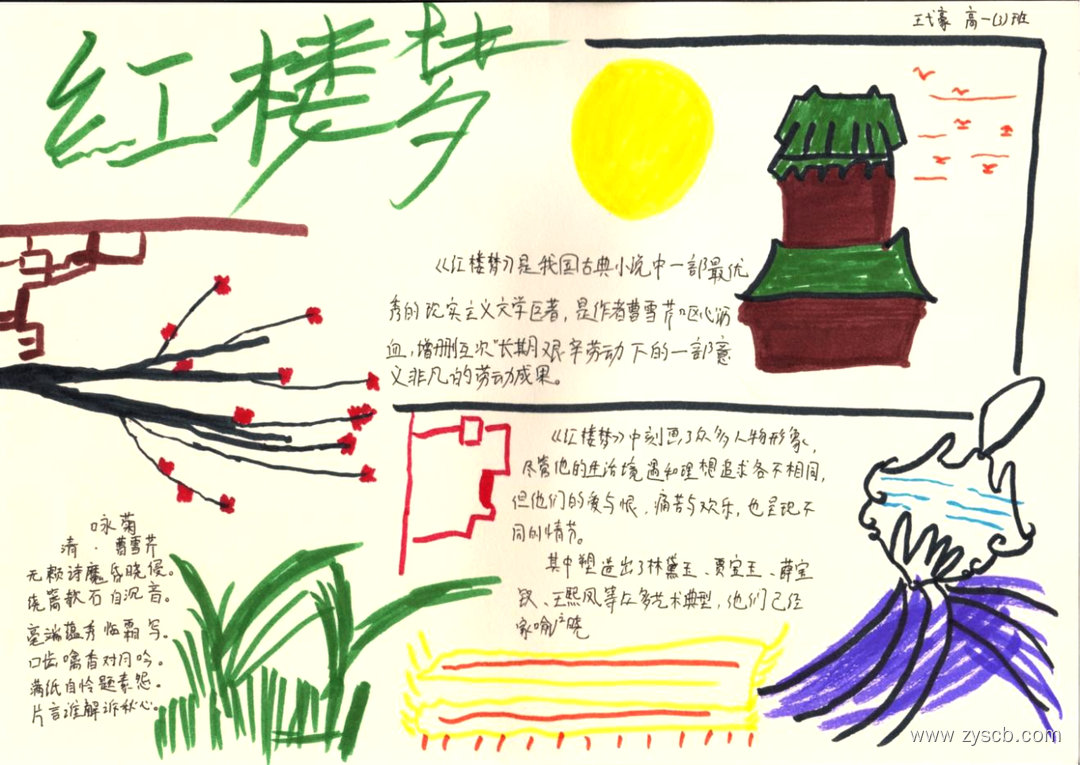 红楼梦
高一(1)班
《红楼梦》是我国古典小说中一部最优
秀的现实主义文学巨著，是作者曹雪芹"呕心沥
血，增删五次"长期艰辛劳动下的一部意
义非凡的劳动成果。
《红楼梦》中刻画了众多人物形象，
尽管他的生活境遇和理想追求各不相同，
但他们的爱与恨、痛苦与欢乐，也呈现不
同的情节。
其中塑造出了林黛玉、贾宝玉、薛宝
钗、王熙凤等众多艺术典型，他们已经
家喻户晓
咏菊
清·曹雪芹
无赖诗魔昏晓侵。
绕篱欹石自沉音。
毫端蕴秀临霜写。
口齿噙香对月吟。
满纸自怜题素怨。
片言谁解诉秋心。
www.zyscb.com